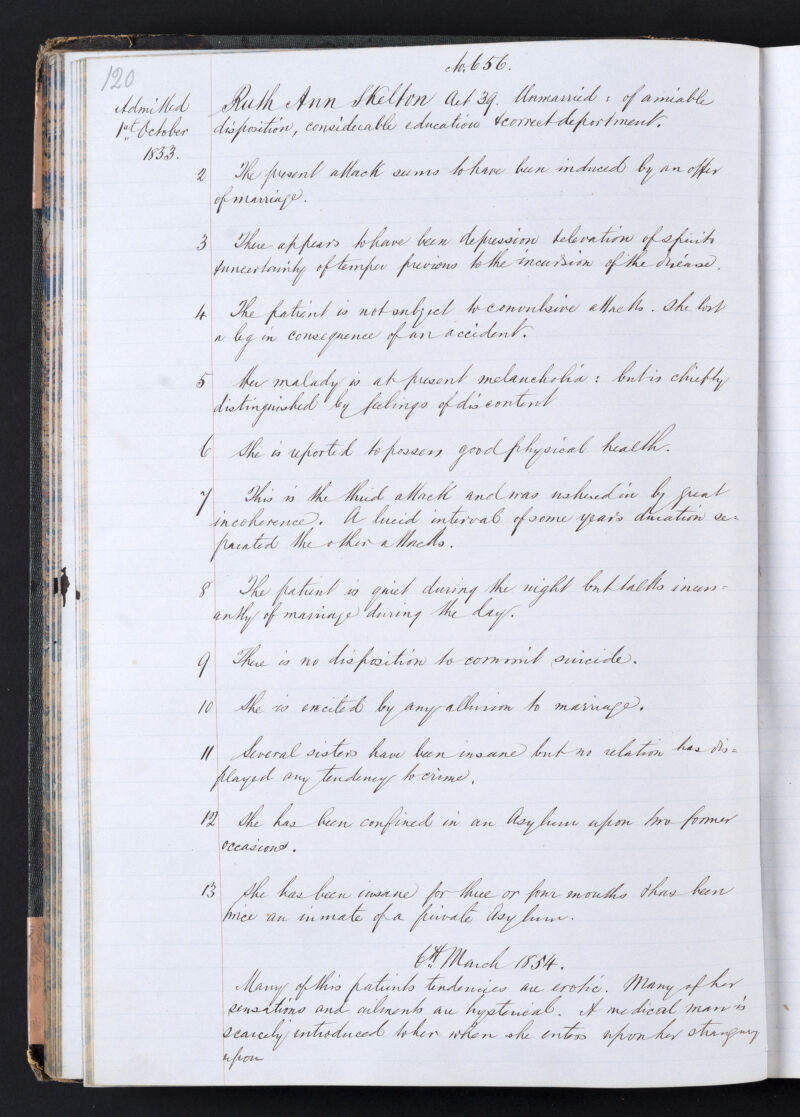 120
No. 656.
Admitted
1st October
1853.
Ruth Ann Skelton Aet 39. Unmarried: of amiable
disposition, considerable education & correct deportment.
2 The present attack seems to have been induced by an offer
of marriage.
3 There appears to have been depression & elevation of spirits
& uncertainty of temper previous to the incursion of the disease.
4 The patient is not subject to convulsive attacks. She lost
a leg in consequence of an accident.
5 Her malady is at present melancholia: but is chiefly
distinguished by feelings of discontent
6 She is reported to possess good physical health.
7 This is the third attack and was ushered in by great
incoherence. A lucid interval of some years duration se=
parated the other attacks.
8 The patient is quiet during the night but talks incess=
antly of marriage during the day.
9 There is no disposition to commit suicide.
10 She is excited by any allusion to marriage.
11 Several sisters have been insane but no relation has dis=
played any tendency to crime.
12 She has been confined in an Asylum upon two former
occasions.
13 She has been insane for three or four months & has been
twice an inmate of a private Asylum.
6th March 1854.
Many of this patients tendencies are erotic. Many of her
sensations and ailments are hysterical. A medical man is
scarcely introduced to her when she enters upon her strangury
upon